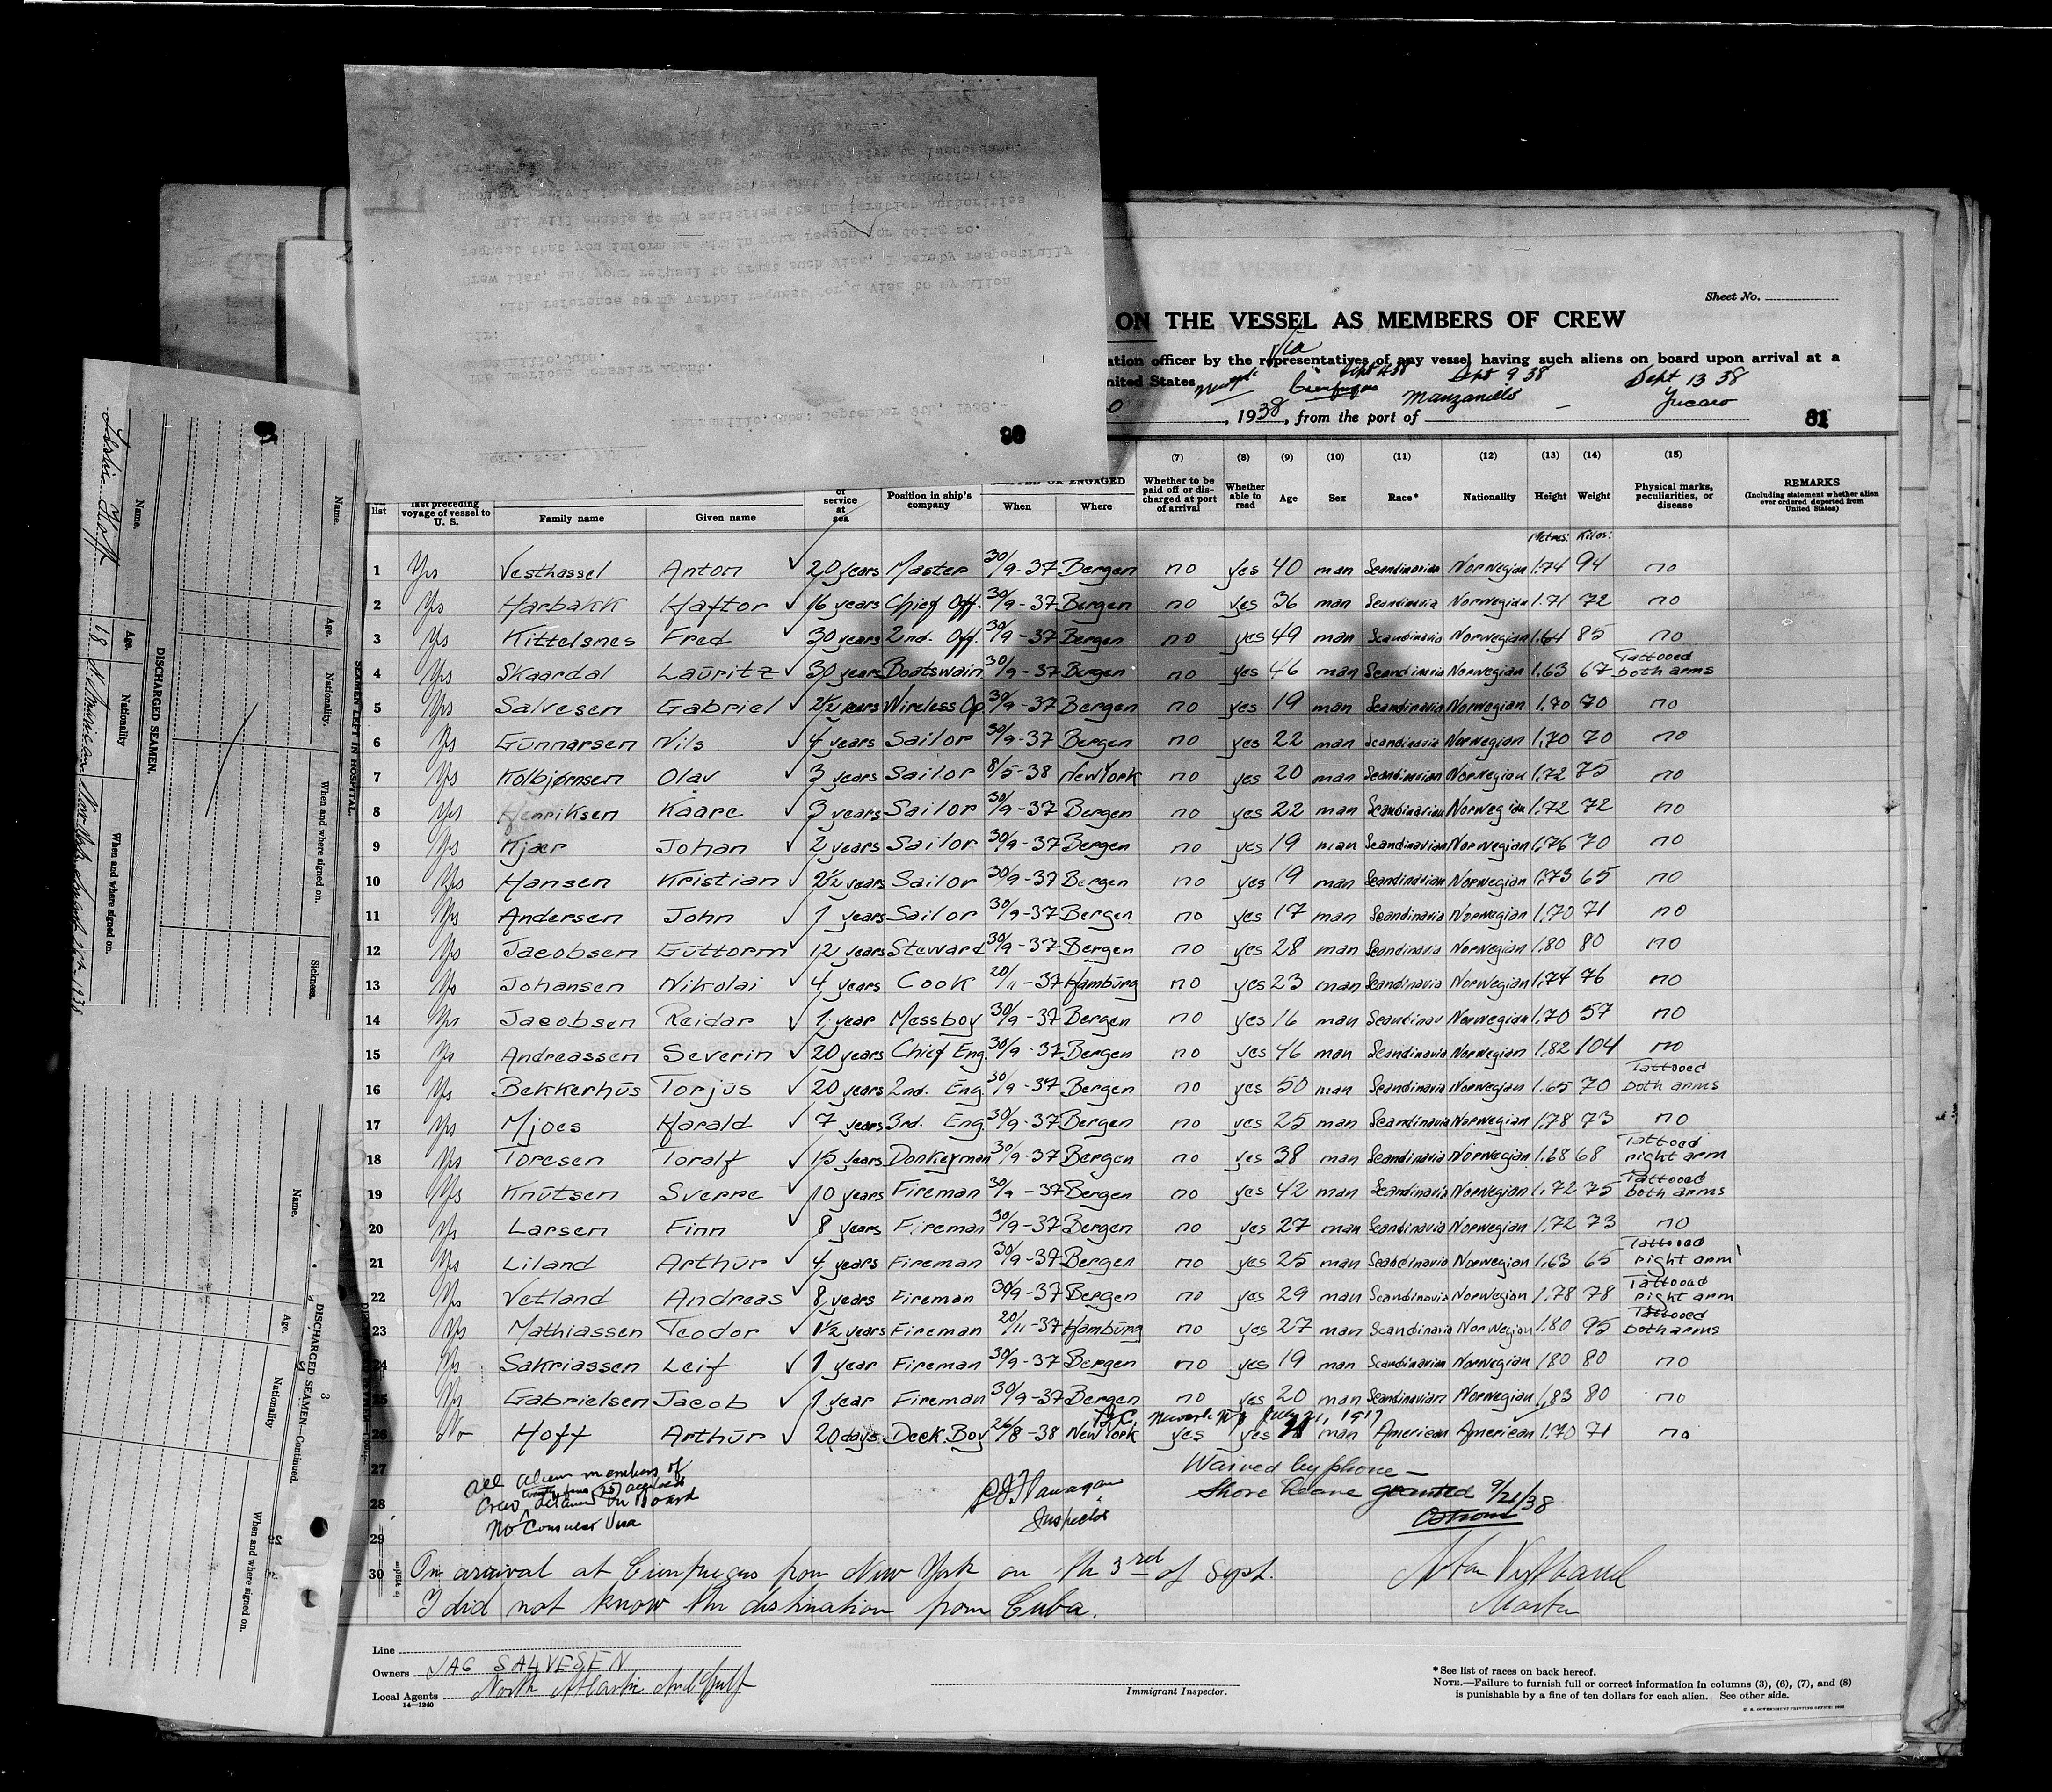 Sheet No.
ON THE VESSEL AS MEMBERS OF CREW
Via
ation officer by the representatives of any vessel having such aliens on board upon arrival at a
nited States
Sept 9 38
Sept 13 38
Manzanillo
Jucaro
, 1938, from the port of
81
98
Manzanillo, Cuba: September 9th, 1938.-
The American Consular Agent.
Manzanillo, Cuba.
With reference to my verbal request for a Visa to my Alien
Crew List, and your refusal to grant such Visa, I hereby respectfully
request that you inform me within your reason for doing so.
This will enable to my satisfice the Immigration Authorities
list
last preceding voyage of vessel to U. S.
Family name
Given name
of service at sea
Position in ship's company
OR ENGAGED
When
Where
(7) Whether to be paid off or discharged at port of arrival
(8) Whether able to read
(9) Age
(10) Sex
(11) Race*
(12) Nationality
(13) Height
(14) Weight
(15) Physical marks, peculiarities, or disease
REMARKS
(Including statement whether alien ever ordered deported from United States)
Metres: Kilos:
1 Yes Vesthassel Anton 20 years Master 30/9-37 Bergen no yes 40 man Scandinavian Norwegian 1.74 94 no
2 Yes Harbakk Haftor 16 years Chief Off. 30/9-37 Bergen no yes 36 man Scandinavia Norwegian 1.71 72 no
3 Yes Kittelsnes Fred 30 years 2nd. Off. 30/9-37 Bergen no yes 49 man Scandinavia Norwegian 1.64 85 no
4 Yes Skaardal Lauritz 30 years Boatswain 30/9-37 Bergen no yes 46 man Scandinavia Norwegian 1.63 67 Tattooed both arms
5 Yes Salvesen Gabriel 2½ years Wireless Op. 30/9-37 Bergen no yes 19 man Scandinavia Norwegian 1.70 70 no
6 Yes Gunnarsen Nils 4 years Sailor 30/9-37 Bergen no yes 22 man Scandinavia Norwegian 1,70 70 no
7 Yes Kolbjørnsen Olav 3 years Sailor 8/5-38 New York no yes 20 man Scandinavian Norwegian 1.72 75 no
8 Yes Henriksen Kaare 3 years Sailor 30/9-37 Bergen no yes 22 man Scandinavian Norwegian 1.72 72 no
9 Yes Kjær Johan 2 years Sailor 30/9-37 Bergen no yes 19 man Scandinavian Norwegian 1,76 70 no
10 Yes Hansen Kristian 2½ years Sailor 30/9-37 Bergen no yes 19 man Scandinavian Norwegian 1.73 65 no
11 Yes Andersen John 1 years Sailor 30/9-37 Bergen no yes 17 man Scandinavia Norwegian 1,70 71 no
12 Yes Jacobsen Guttorm 12 years Steward 30/9-37 Bergen no yes 28 man Scandinavia Norwegian 1,80 80 no
13 Yes Johansen Nikolai 4 years Cook 20/11-37 Hamburg no yes 23 man Scandinavia Norwegian 1.74 76 no
14 Yes Jacobsen Reidar 1 year Messboy 30/9-37 Bergen no yes 16 man Scandinav Norwegian 1.70 57 no
15 Yes Andreassen Severin 20 years Chief Eng 30/9-37 Bergen no yes 46 man Scandinavia Norwegian 1,82 104 no
16 Yes Bekkerhus Torjus 20 years 2nd. Eng. 30/9-37 Bergen no yes 50 man Scandinavia Norwegian 1.65 70 Tattooed both arms
17 Yes Mjoes Harald 7 years 3rd. Eng. 30/9-37 Bergen no yes 25 man Scandinavia Norwegian 1.78 73 no
18 Yes Toresen Toralf 15 years Donkeyman 30/9-37 Bergen no yes 38 man Scandinavia Norwegian 1.68 68 Tattooed right arm
19 Yes Knutsen Sverre 10 years Fireman 30/9-37 Bergen no yes 42 man Scandinavia Norwegian 1,72 75 Tattooed both arms
20 Yes Larsen Finn 8 years Fireman 30/9-37 Bergen no yes 27 man Scandinavia Norwegian 1,72 73 no
21 Yes Liland Arthur 4 years Fireman 30/9-37 Bergen no yes 25 man Scandinavia Norwegian 1,63 65 Tattooed right arm
22 Yes Vetland Andreas 8 years Fireman 30/9-37 Bergen no yes 29 man Scandinavia Norwegian 1,78 78 Tattooed right arm
23 Yes Mathiassen Teodor 1½ years Fireman 20/11-37 Hamburg no yes 27 man Scandinavia Norwegian 1.80 95 Tattooed both arms
24 Yes Sakriassen Leif 1 year Fireman 30/9-37 Bergen no yes 19 man Scandinavian Norwegian 1,80 80 no
25 Yes Gabrielsen Jacob 1 year Fireman 30/9-37 Bergen no yes 20 man Scandinavian Norwegian 1,83 80 no
B.C. Newark NJ July 21, 1917
26 No Hoff Arthur 20 days Deck Boy 26/8-38 New York yes yes 21 man American American 1.70 71 no
27
28
29
30
All alien members of
crew twenty five (25) aliens detained on board
No Consular Visa
Inspector
Waived by phone –
Shore leave granted 9/21/38
On arrival at Cienfuegos from New York on the 3rd of Sept.
I did not know the distination from Cuba.
Master
Line
Owners JAG SALVESEN
Local Agents North Atlantic And Gulf
14—1240
Immigrant Inspector.
*See list of races on back hereof.
NOTE.—Failure to furnish full or correct information in columns (3), (6), (7), and (8)
is punishable by a fine of ten dollars for each alien. See other side.
U. S. GOVERNMENT PRINTING OFFICE
SEAMEN LEFT IN HOSPITAL
Name. Age. Nationality. When and where signed on. Sickness.
DISCHARGED SEAMEN.
Name. Age. Nationality When and where signed on.
18
DISCHARGED SEAMEN—Continued.
Name. Age. Nationality When and where signed on.